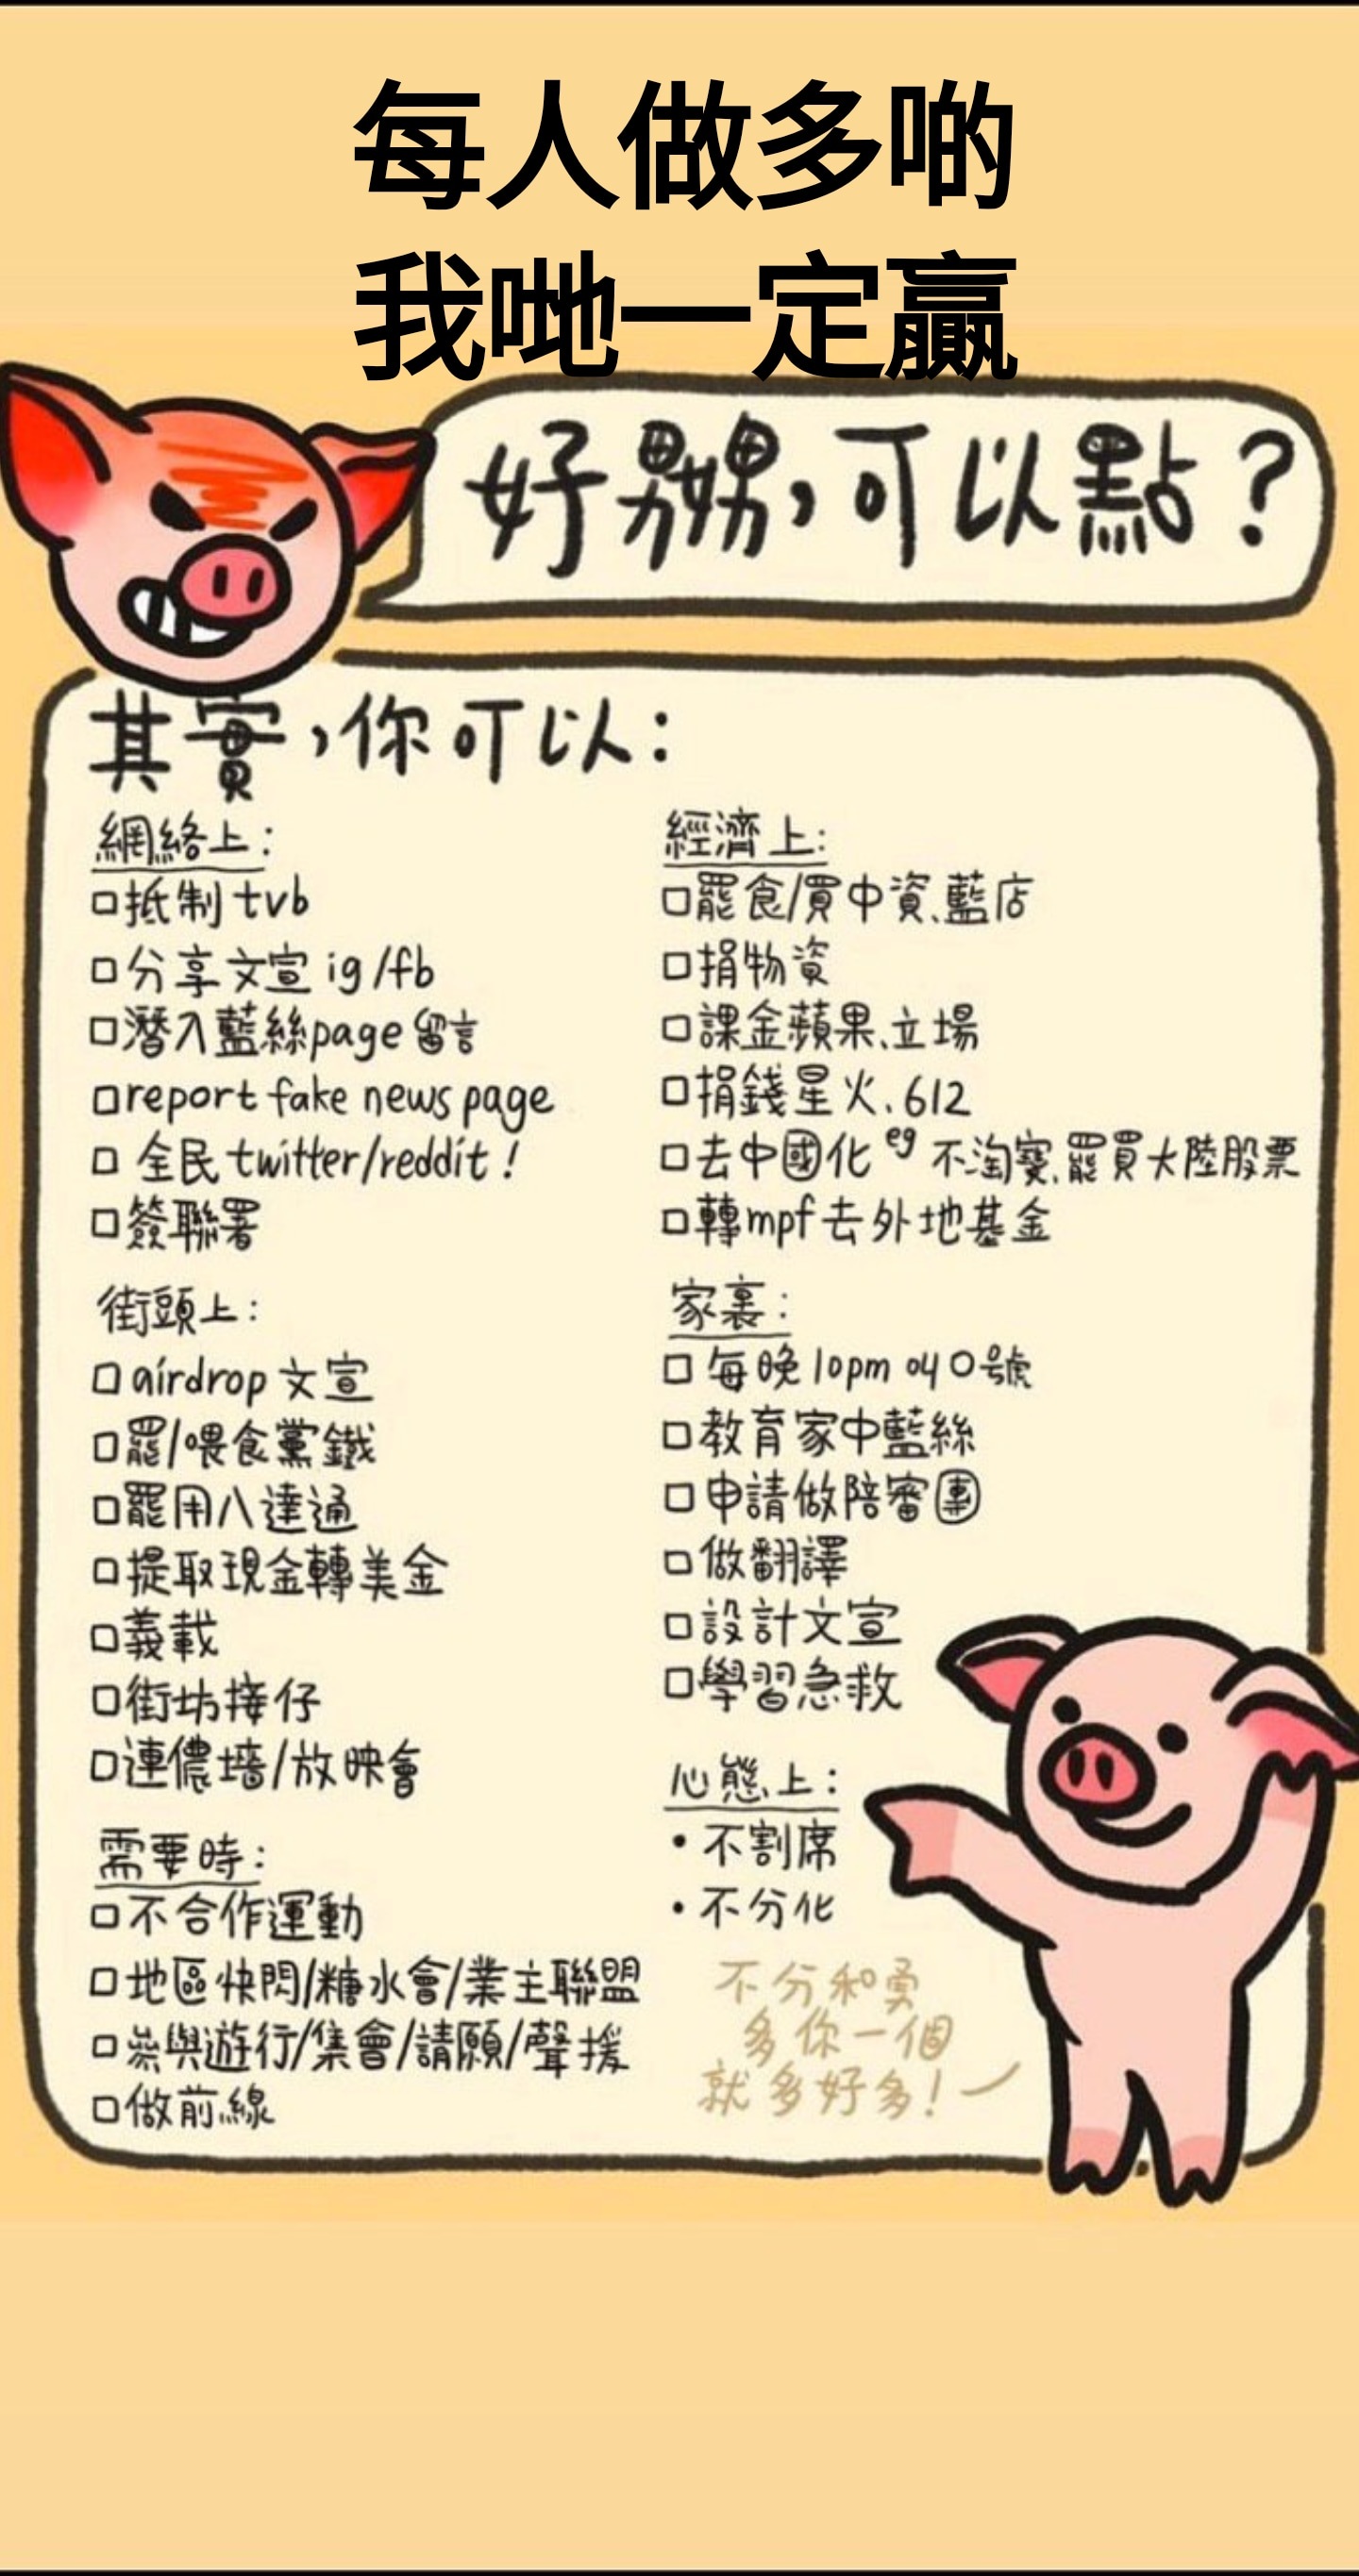 每人做多啲
我哋一定贏
好嬲,可以點?
其實,你可以:
網絡上:
□抵制tvb
□分享文宣 ig/fb
□潛入藍絲page留言
□report fake news page
□全民twitter/reddit!
□簽聯署
街頭上:
□airdrop文宣
□罷/喂食黨鐵
□罷用八達通
□提取現金轉美金
□義載
□街坊接仔
□連儂墻/放映會
需要時:
□不合作運動
□地區快閃/糖水會/業主聯盟
□參與遊行/集會/請願/聲援
□做前線
經濟上:
□罷食/買中資、藍店
□捐物資
□課金蘋果、立場
□捐錢星火、612
□去中國化 eg 不淘寶、罷買大陸股票
□轉mpf去外地基金
家裏:
□每晚10pm 嗌口號
□教育家中藍絲
□申請做陪審團
□做翻譯
□設計文宣
□學習急救
心態上:
•不割席
•不分化
不分和勇
多你一個
就多好多!